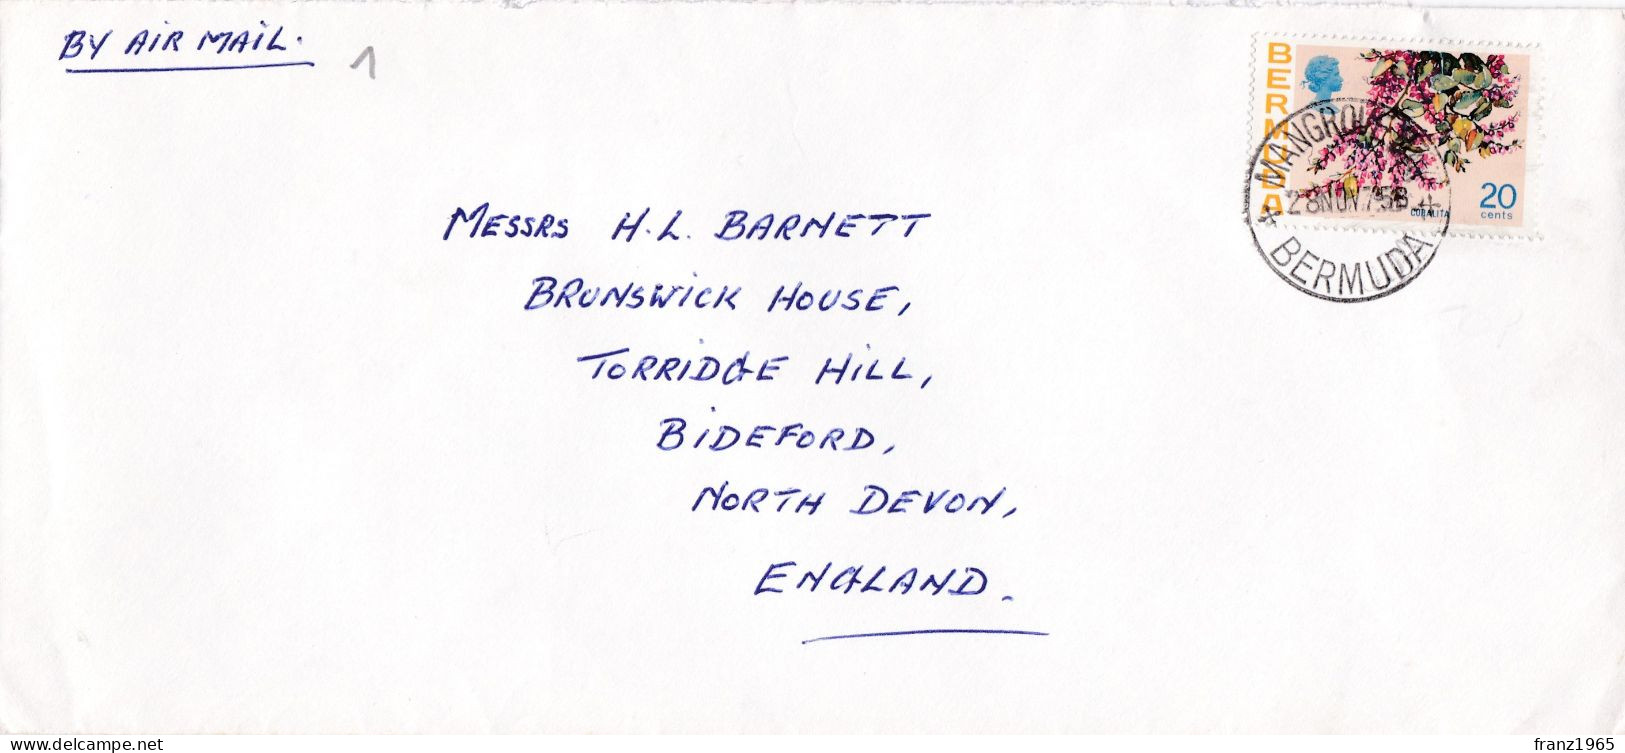 BY AIR MAIL.
1
BERMUDA
20
cents
CORALITA
28 NOV 75B
BERMUDA
MESSRS H.L. BARNETT
BRUNSWICK HOUSE,
TORRIDGE HILL,
BIDEFORD,
NORTH DEVON,
ENGLAND.
delcampe.net
franz1965